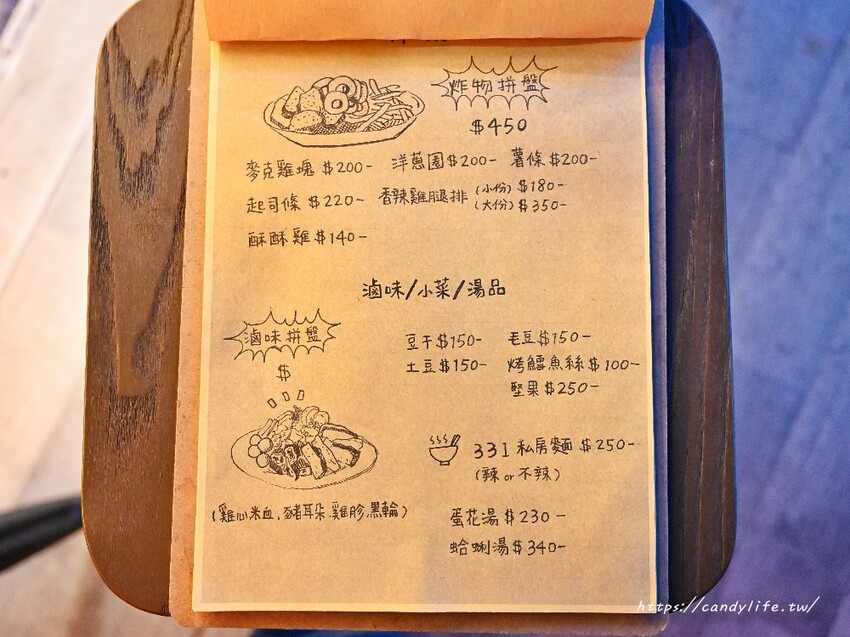 炸物拼盤
$450
麥克雞塊 $200- 洋蔥圈$200- 薯條 $200-
起司條 $220- 香辣雞腿排 (小份) $180-
(大份) $350-
酥酥雞 $140-
滷味/小菜/湯品
滷味拼盤
$
豆干$150- 毛豆$150-
土豆$150- 烤鱈魚絲$100-
堅果$250-
331 私房麵 $250-
(辣 or 不辣)
(雞心米血,豬耳朵,雞胗,黑輪)
蛋花湯 $230-
蛤蜊湯 $340-
https://candylife.tw/